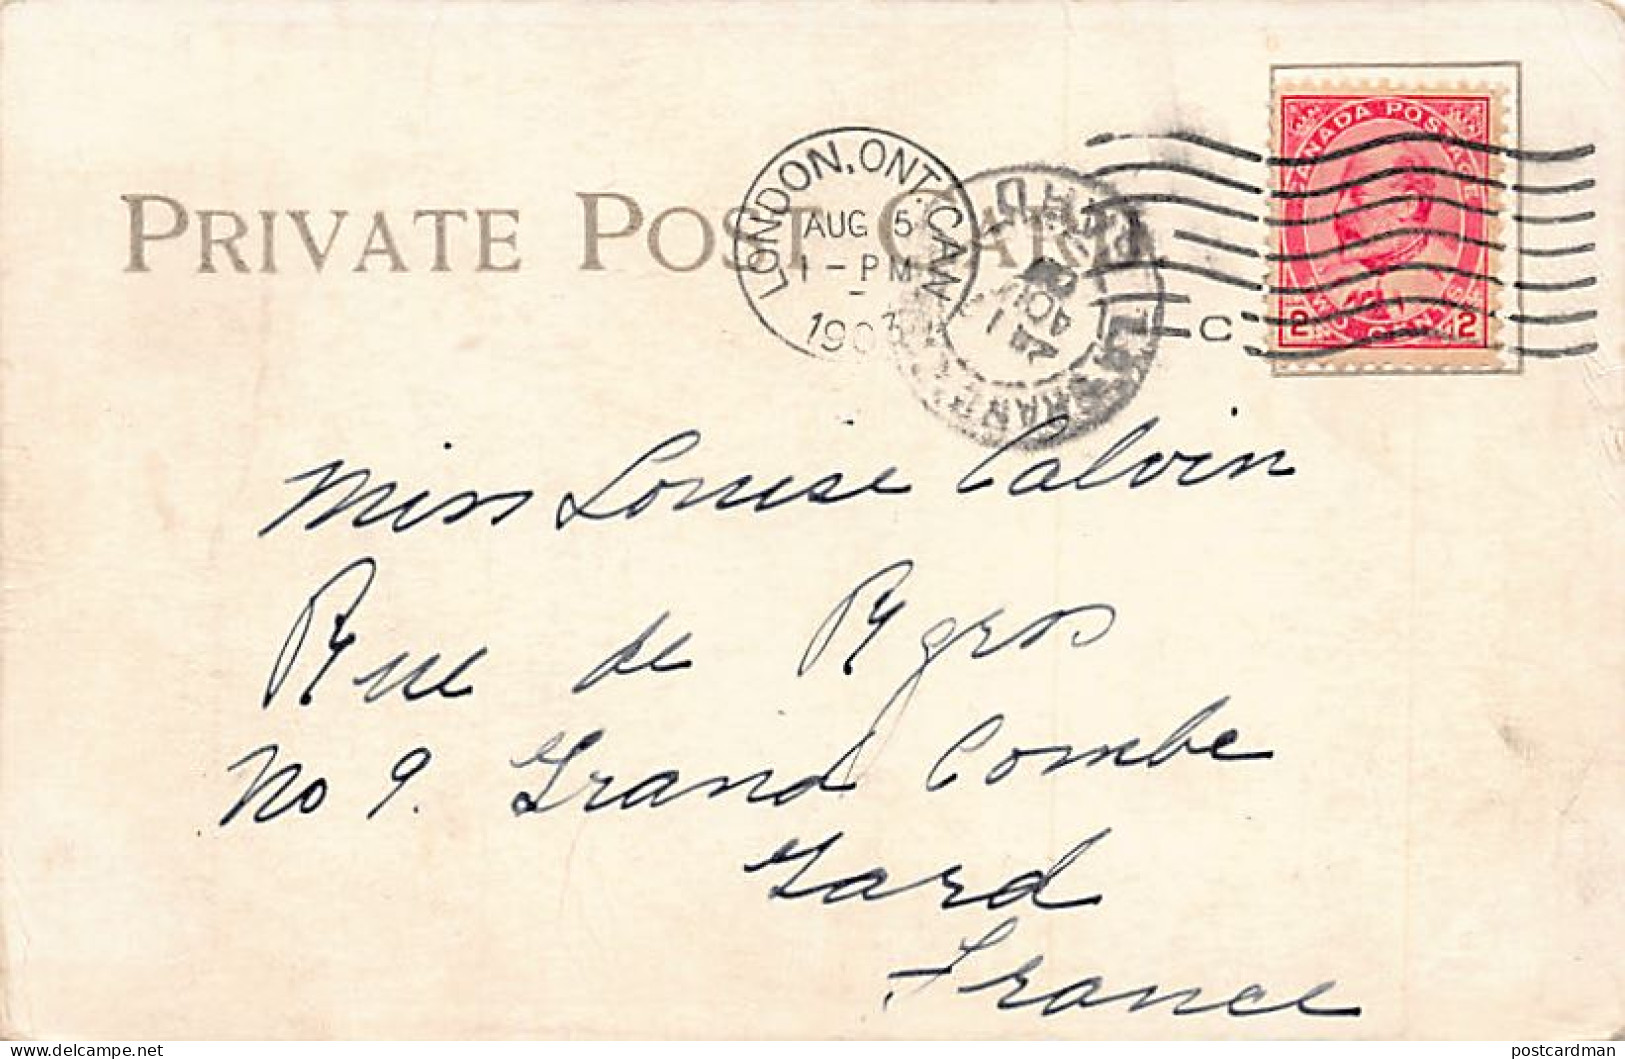 PRIVATE POST CARD
LONDON, ONT. CAN
AUG 5
1 - PM
190
CANADA POSTAGE
2 CENTS 2
C
GARD
LA GRAND
Miss Louise Calvin
Rue de
No 9. Grand Combe
Gard
France
delcampe.net
postcardman